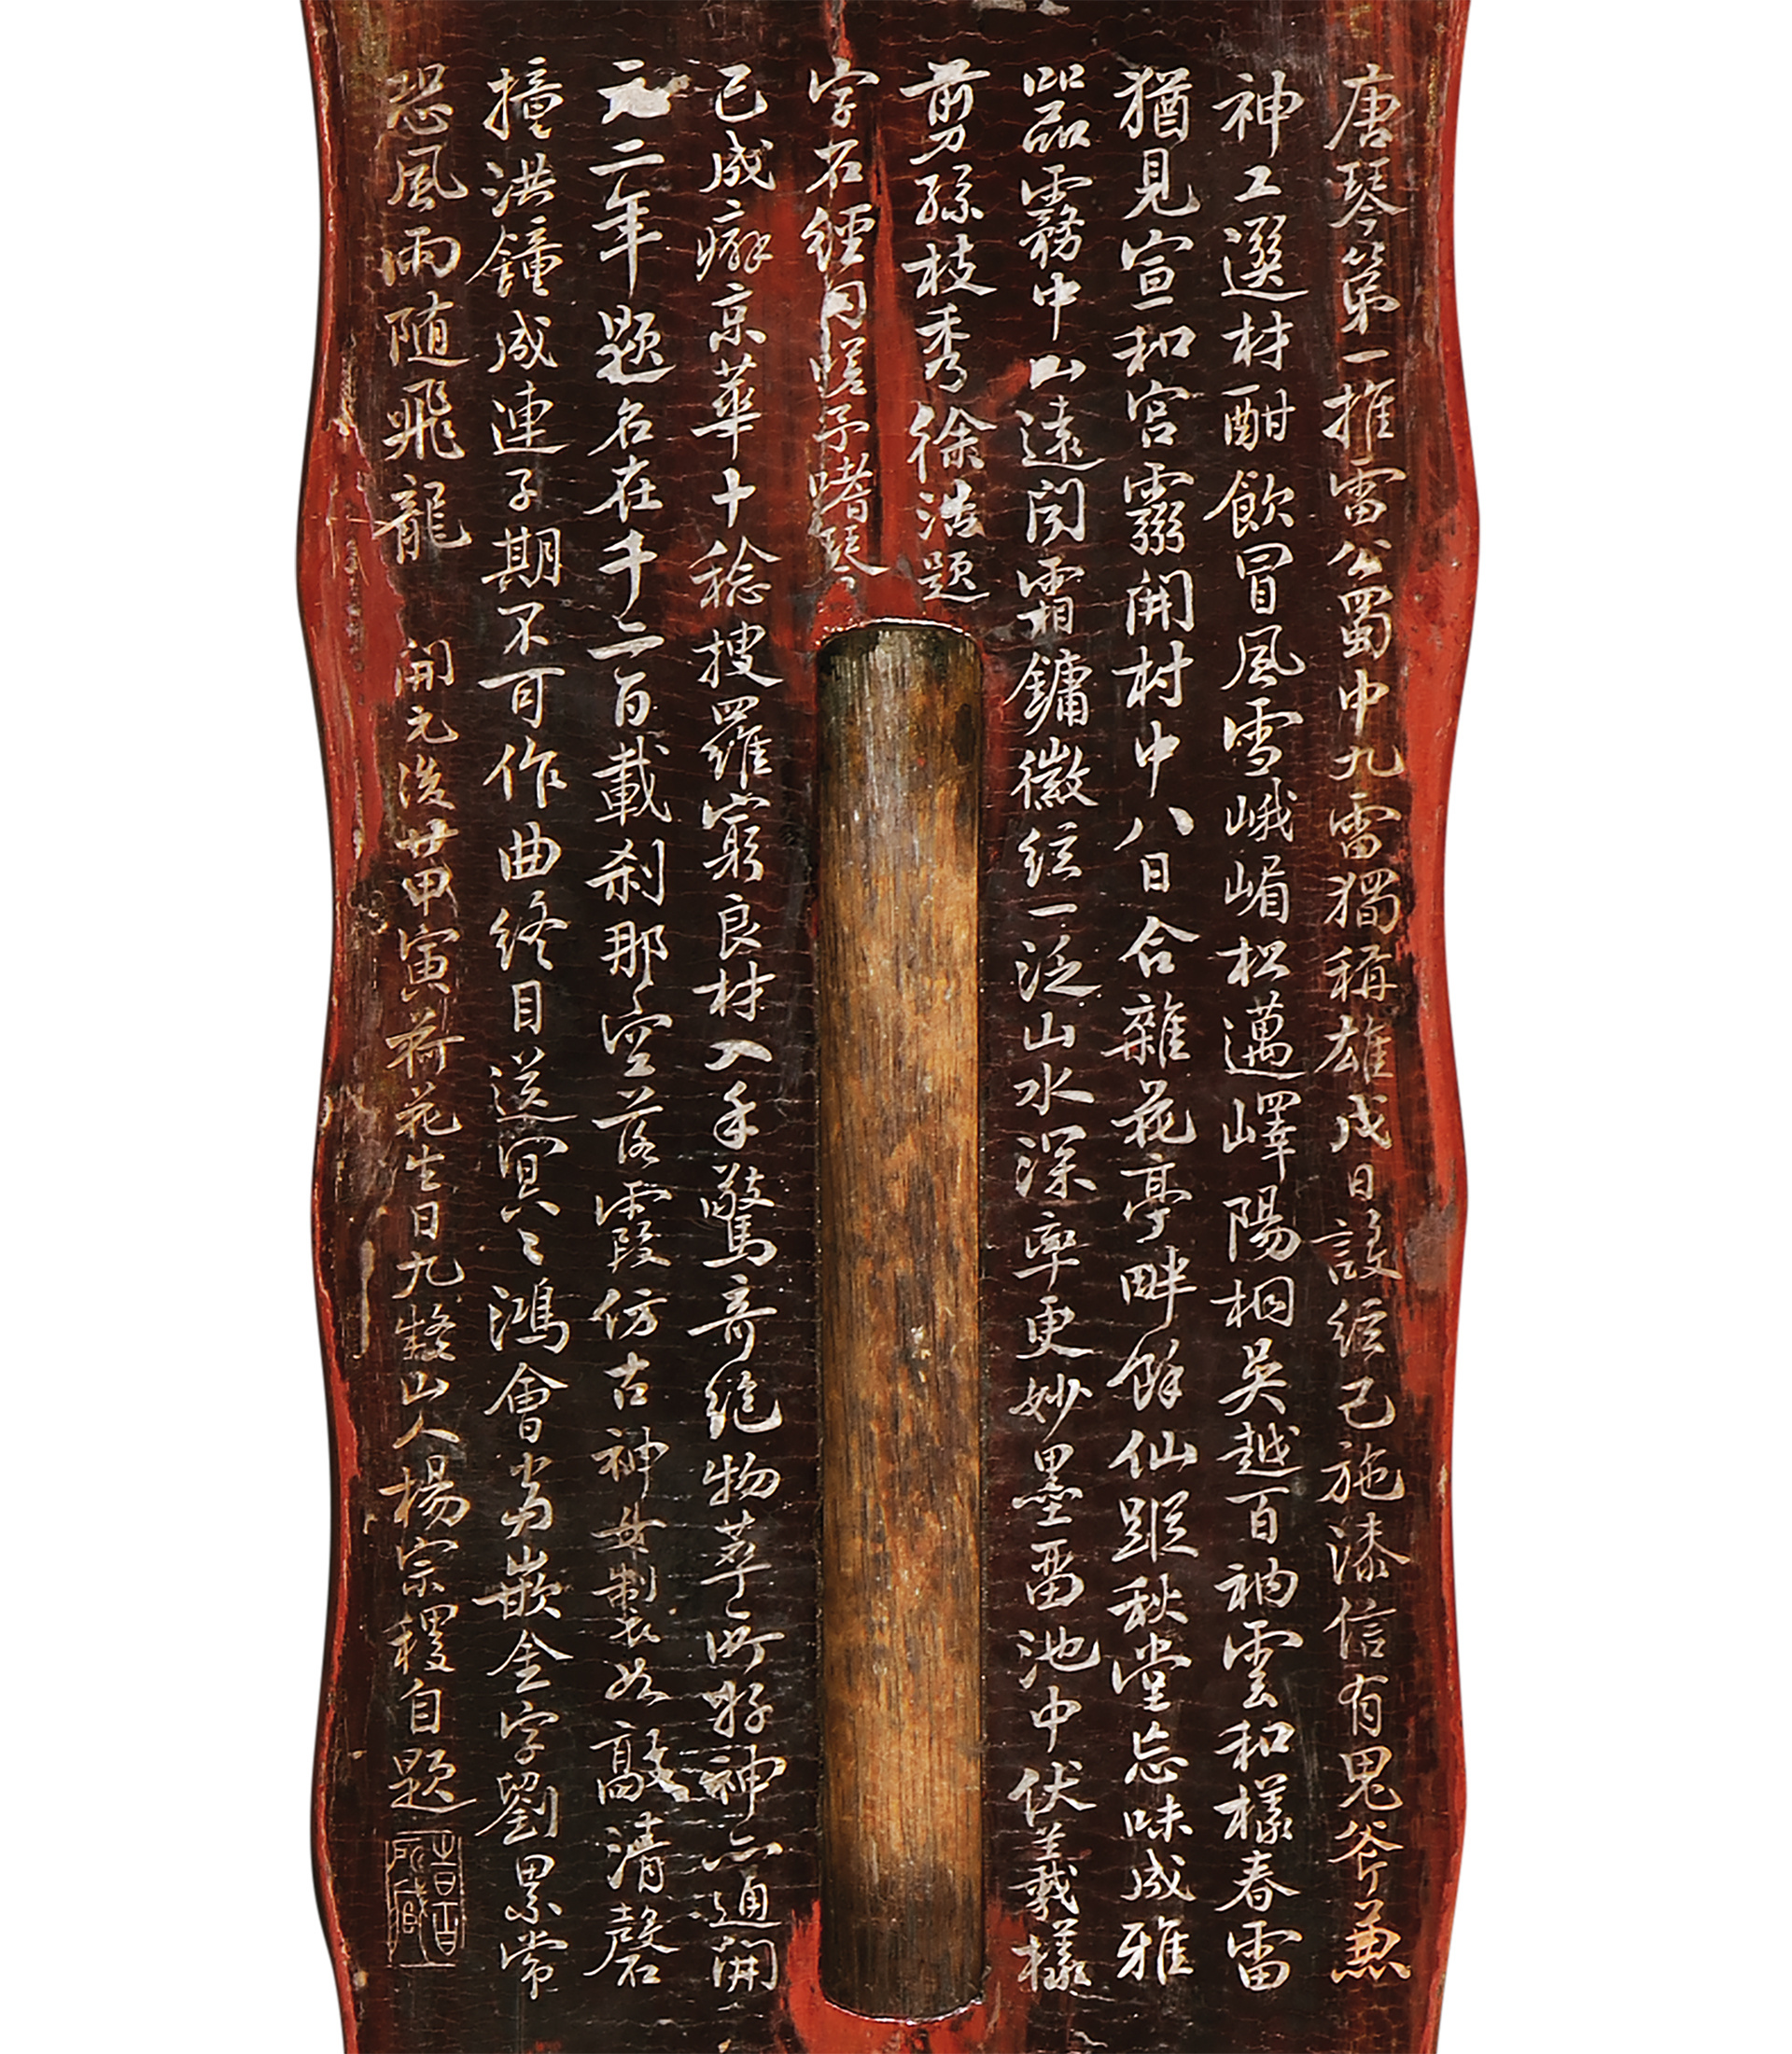 唐琴第一推雷公蜀中九雷獨稱雄戌日設絃已施漆信有鬼斧兼
神工選材酣飲冒風雪峨嵋松邁嶧陽桐吳越百衲雲和樣春雷
猶見宣和宮靈開村中八日合雜花亭畔餘仙蹤秋堂忘味成雅
器霧中山遠聞霜鏞徽絃一泛山水深率更妙墨留池中伏羲樣
剪孫枝秀徐浩題
字石經同嗟予嗜琴
已成癖京華十稔搜羅窮良材入手驚奇絕物萃所好神亦通開
元二年題名在千二百載剎那空落霞仿古神女製衣如敲清磬
撞洪鐘成連子期不可作曲終目送冥〻鴻會當嵌金字劉累常
恐風雨随飛龍 開元後廿甲寅荷花生日九疑山人楊宗稷自題